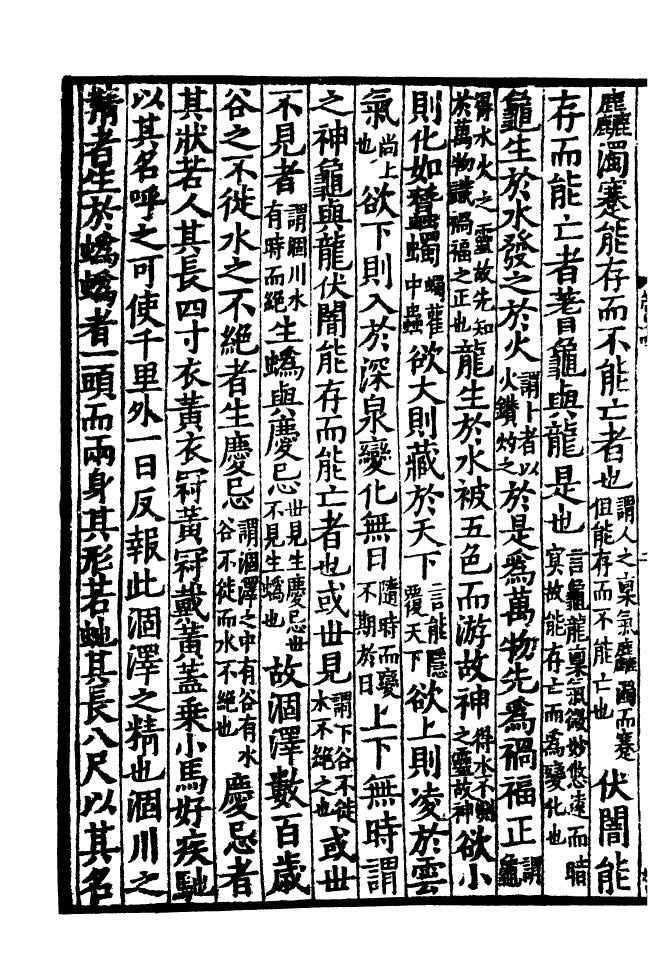 麤濁蹇能存而不能亡者也謂人之稟氣麤濁而蹇但能存而不能亡也伏闇能
存而能亡者蓍龜與龍是也言龜龍稟氣微妙悠遠而暗寞故能存亡而爲變化也
龜生於水發之於火謂卜者以火鑽灼之於是爲萬物先爲禍福正龜謂
得水火之靈故先知於萬物識禍福之正也龍生於水被五色而游故神得水不測之靈故神欲小
則化如蠶蠋蠋藿中蟲欲大則藏於天下言能隱覆天下欲上則凌於雲
氣尚上也欲下則入於深泉變化無日隨時而變不期於日上下無時謂
之神龜與龍伏闇能存而能亡者也或世見謂下谷不徙水不絕之也或世
不見者謂涸川水有時而絕生蟡與慶忌世見生慶忌世不見生蟡也故涸澤數百歲
谷之不徙水之不絕者生慶忌謂涸澤之中有谷有水谷不徙而水不絕也慶忌者
其狀若人其長四寸衣黃衣冠黃冠戴黃蓋乘小馬好疾馳
以其名呼之可使千里外一日反報此涸澤之精也涸川之
精者生於蟡蟡者一頭而兩身其形若虵其長八尺以其名